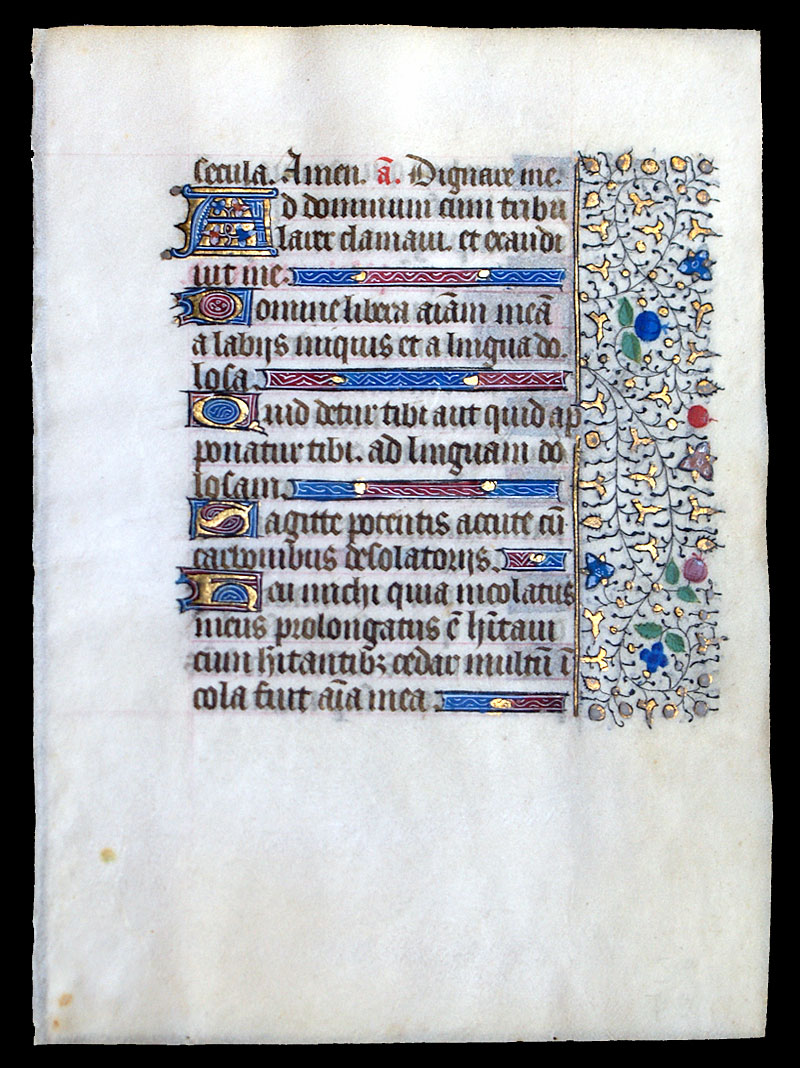 secula. Amen. ā. Dignare me.
Ad dominum cum tribu
larer clamaui. et exaudi
uit me
Domine libera aīam meā
a labijs iniquis et a lingua do.
losa.
Quid detur tibi aut quid ap
ponatur tibi. ad linguam do
losam.
Sagitte potentis accute cū
carbonibus desolatorijs.
Heu michi quia incolatus
meus prolongatus ē hītaui
cum hītantibꝫ cedar multū ī
cola fuit aīa mea